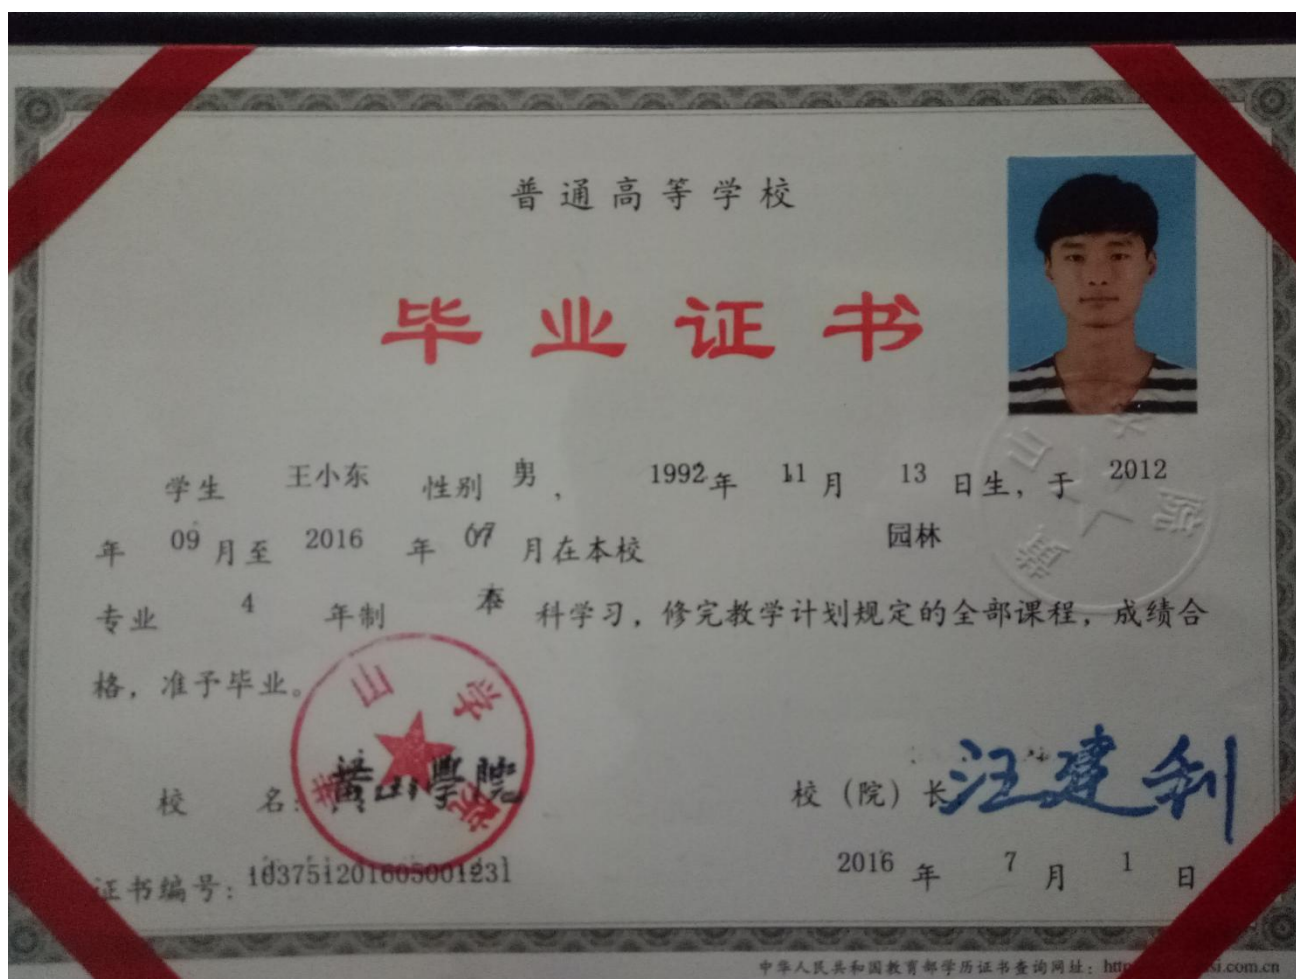 普通高等学校
毕业证书
学生 王小东 性别 男 , 1992年 11月 13日生，于 2012
年 09月至 2016 年 07 月在本校 园林
专业 4 年制 本 科学习，修完教学计划规定的全部课程，成绩合
格，准予毕业。
校 名：黄山學院 校（院）长 汪建利
证书编号：103751201605001231 2016年 7月 1日
中华人民共和国教育部学历证书查询网址：